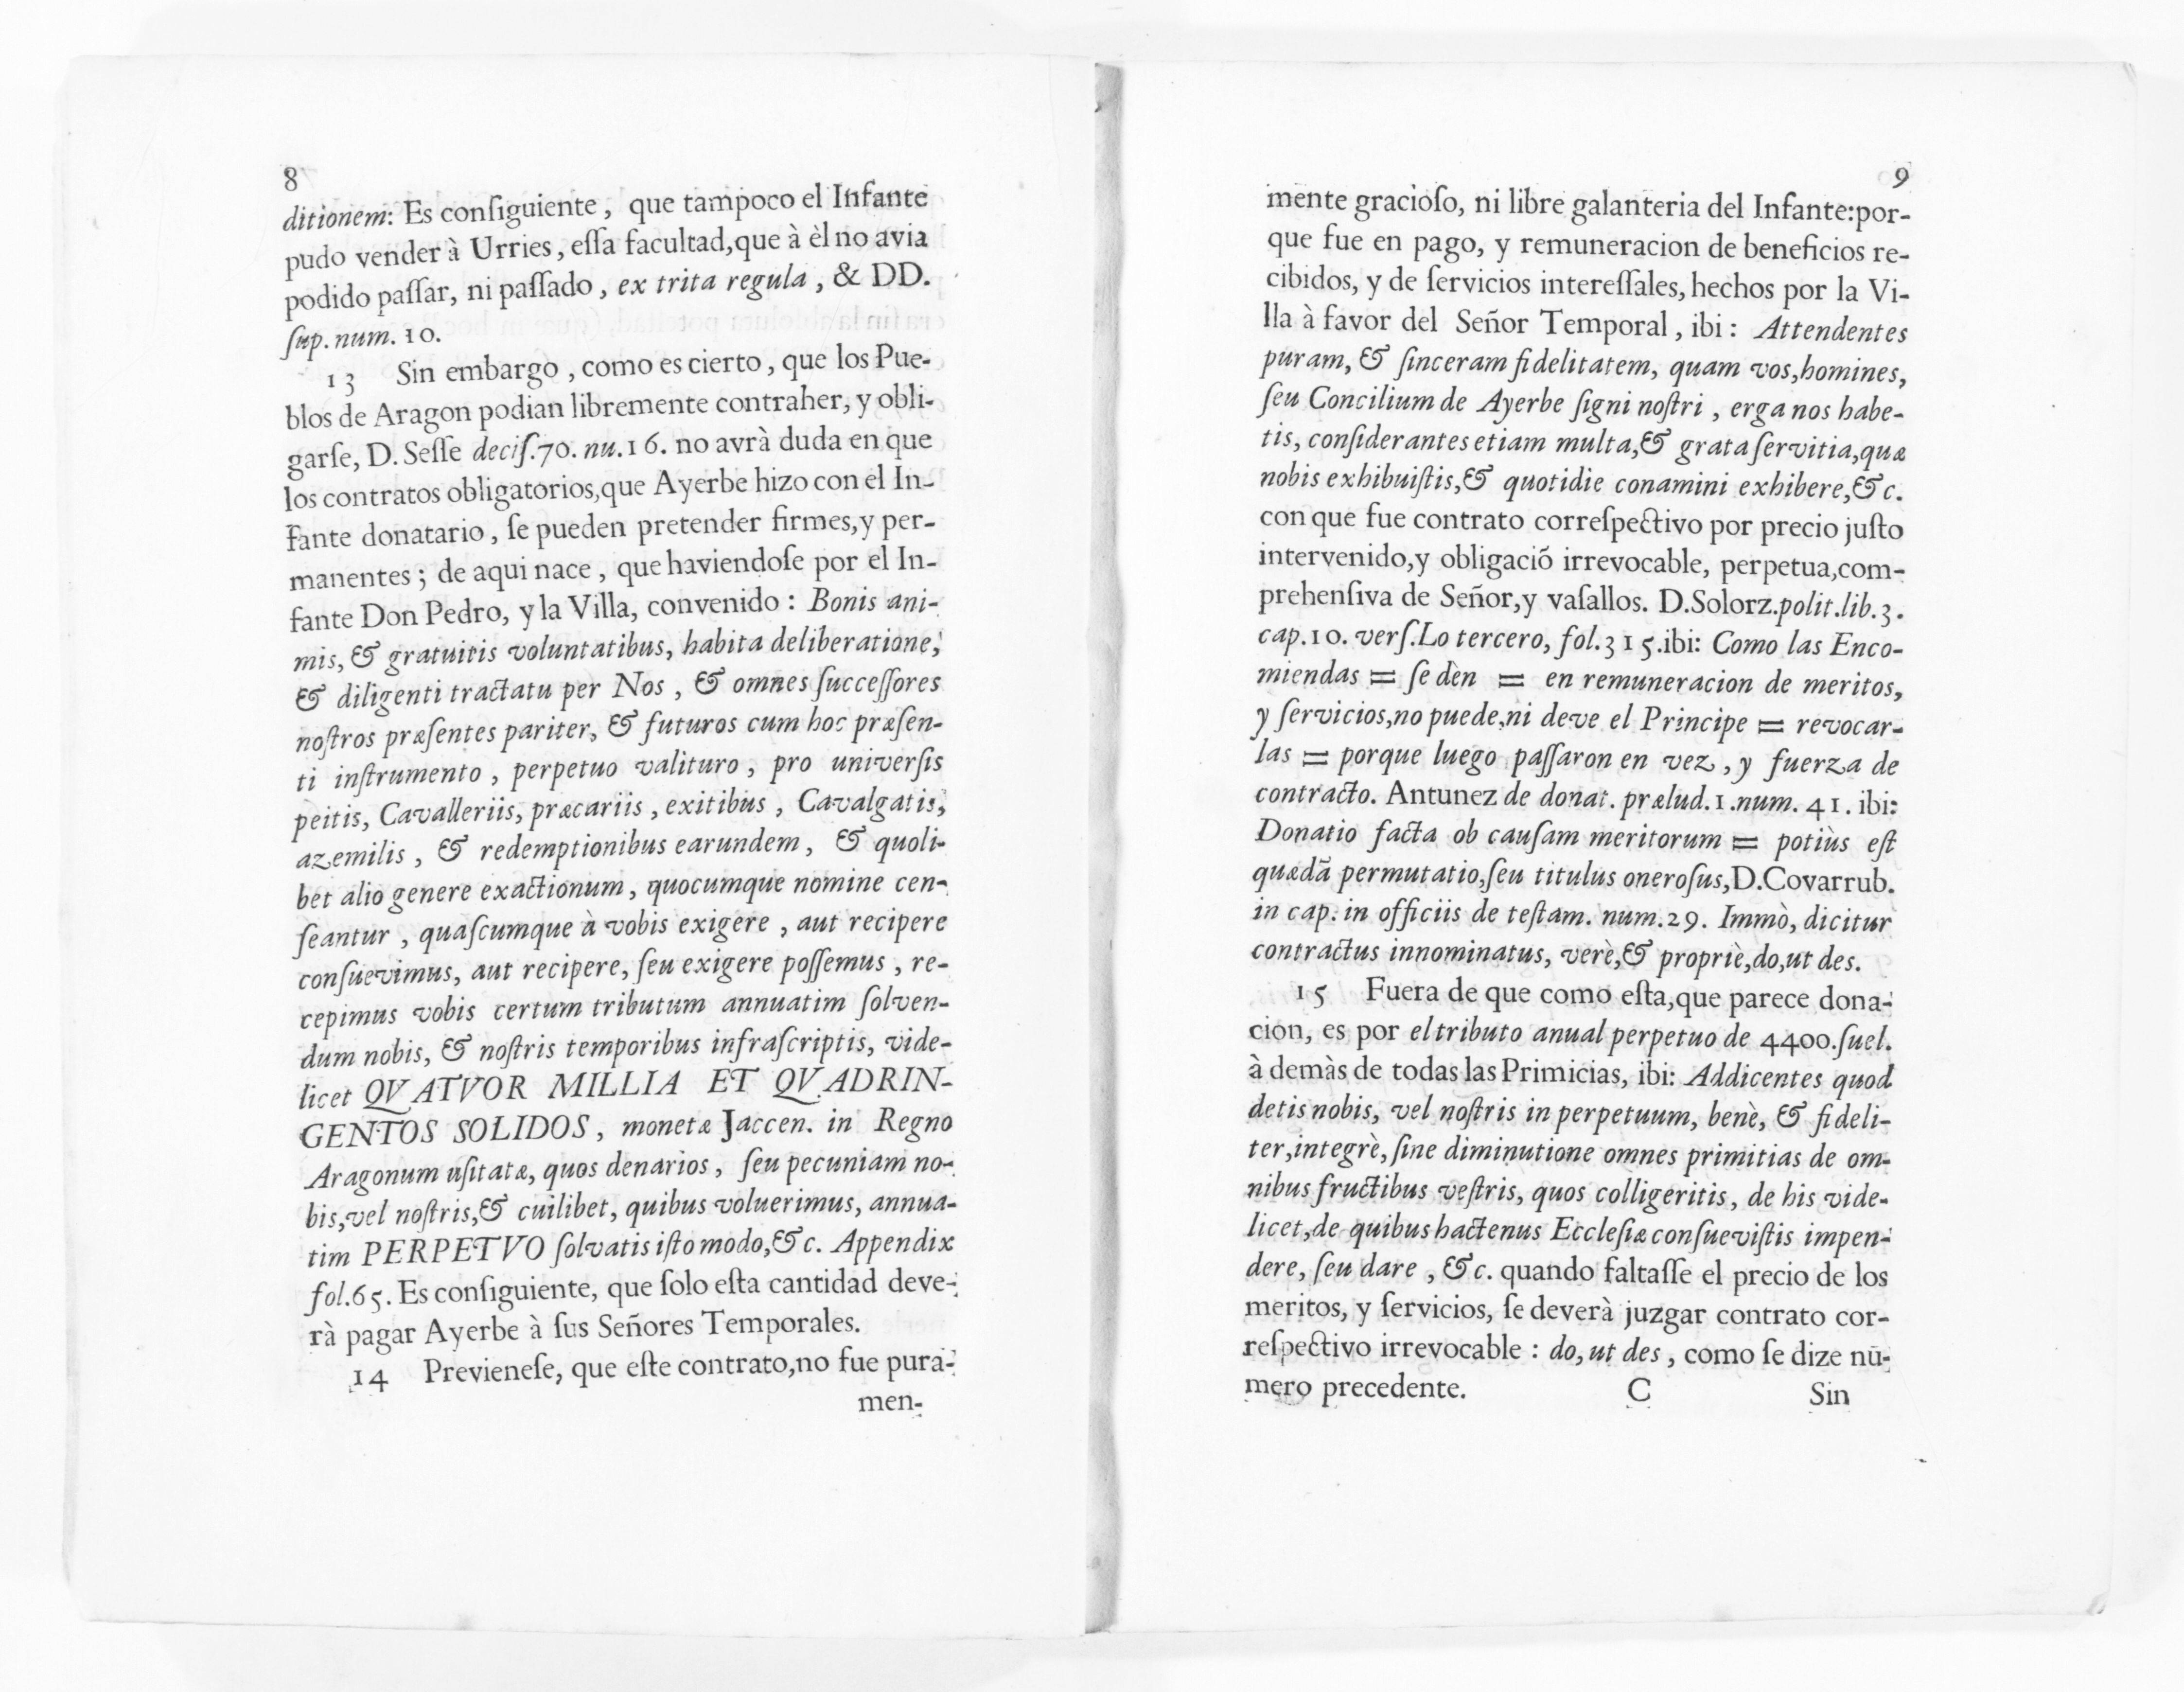 8
ditionem: Es conſiguiente, que tampoco el Infante
pudo vender à Urries, eſſa facultad,que à èl no avia
podido paſſar, ni paſſado, ex trita regula, & DD.
ſup. num. 10.
13 Sin embargo, como es cierto, que los Pue-
blos de Aragon podian libremente contraher, y obli-
garſe, D. Seſſe deciſ.70. nu.16. no avrà duda en que
los contratos obligatorios,que Ayerbe hizo con el In-
fante donatario, ſe pueden pretender firmes,y per-
manentes; de aqui nace, que haviendoſe por el In-
fante Don Pedro, y la Villa, convenido: Bonis ani-
mis, & gratuitis voluntatibus, habita deliberatione,
& diligenti tractatu per Nos, & omnes ſucceſſores
noſtros præſentes pariter, & futuros cum hoc præſen-
ti inſtrumento, perpetuo valituro, pro univerſis
peitis, Cavalleriis, præcariis, exitibus, Cavalgatis,
azemilis, & redemptionibus earundem, & quoli-
bet alio genere exactionum, quocumque nomine cen-
ſeantur, quaſcumque à vobis exigere, aut recipere
conſuevimus, aut recipere, ſeu exigere poſſemus, re-
cepimus vobis certum tributum annuatim ſolven-
dum nobis, & noſtris temporibus infraſcriptis, vide-
licet QVATVOR MILLIA ET QVADRIN-
GENTOS SOLIDOS, monetæ Jaccen. in Regno
Aragonum uſitatæ, quos denarios, ſeu pecuniam no-
bis,vel noſtris,& cuilibet, quibus voluerimus, annua-
tim PERPETVO ſolvatis iſto modo,&c. Appendix
fol.65. Es conſiguiente, que ſolo eſta cantidad deve-
rà pagar Ayerbe à ſus Señores Temporales.
14 Previeneſe, que eſte contrato,no fue pura-
men-
9
mente gracioſo, ni libre galanteria del Infante:por-
que fue en pago, y remuneracion de beneficios re-
cibidos, y de ſervicios intereſſales, hechos por la Vi-
lla à favor del Señor Temporal, ibi: Attendentes
puram, & ſinceram fidelitatem, quam vos,homines,
ſeu Concilium de Ayerbe ſigni noſtri, erga nos habe-
tis, conſiderantes etiam multa,& grata ſervitia,quæ
nobis exhibuiſtis,& quotidie conamini exhibere,&c.
con que fue contrato correſpectivo por precio juſto
intervenido,y obligaciõ irrevocable, perpetua,com-
prehenſiva de Señor,y vaſallos. D.Solorz.polit.lib.3.
cap.10. verſ.Lo tercero, fol.315.ibi: Como las Enco-
miendas = ſe dèn = en remuneracion de meritos,
y ſervicios,no puede,ni deve el Principe = revocar-
las = porque luego paſſaron en vez, y fuerza de
contracto. Antunez de donat. prælud.1.num. 41. ibi:
Donatio facta ob cauſam meritorum = potiùs eſt
quædã permutatio,ſeu titulus oneroſus,D.Covarrub.
in cap. in officiis de teſtam. num.29. Immò, dicitur
contractus innominatus, verè,& propriè,do,ut des.
15 Fuera de que como eſta,que parece dona-
cion, es por el tributo anual perpetuo de 4400.ſuel.
à demàs de todas las Primicias, ibi: Addicentes quod
detis nobis, vel noſtris in perpetuum, benè, & fideli-
ter,integrè, ſine diminutione omnes primitias de om-
nibus fructibus veſtris, quos colligeritis, de his vide-
licet,de quibus hactenus Eccleſiæ conſueviſtis impen-
dere, ſeu dare, &c. quando faltaſſe el precio de los
meritos, y ſervicios, ſe deverà juzgar contrato cor-
reſpectivo irrevocable: do, ut des, como ſe dize nu-
mero precedente. C Sin